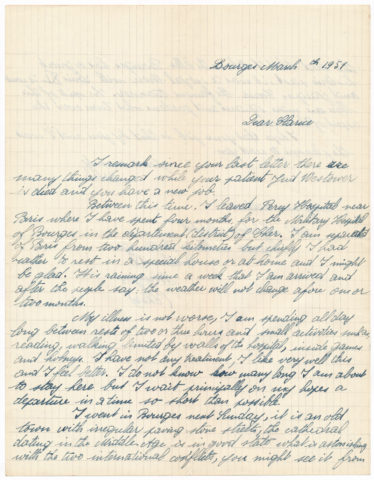 Bourges March th 1951
Dear Clarice
I remark since your last letter there are
many things changed while your patient Jud Westover
is died and you have a new job.
Between this time. I leaved Percy Hospital near
Paris where I have spent four months, for the Military Hospital
of Bourges in the department (district) of Cher. I am separated
of Paris from two hundred kilometres but chiefly I had
rather to rest in a special house or at home and I might
be glad. It is raining since a week that I am arrived and
after the people say the weather will not change afore one or
two months.
My illness is not worse, I am spending all day
long between rests of two or three hours and small activities such as
reading, walking limited by walls of the hospital, inside games
and hobbys. I have not any treatment. I like very well this
and I feel better. I do not know how many long I am about
to stay here but I wait principally on my hopes a
departure in a time so short than possible.
I went in Bourges next Sunday, it is an old
town with irregular paving stone streets, the cathedral
dating in the Middle Age is in good state what is astonishing
with the two international conflicts, you might see it from